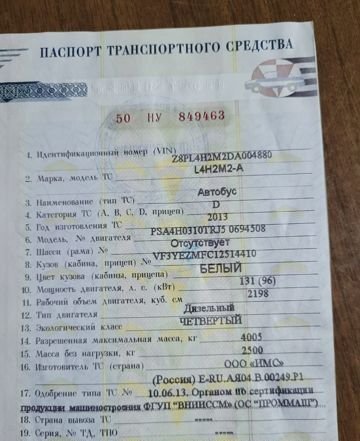 ПАСПОРТ ТРАНСПОРТНОГО СРЕДСТВА
50 НУ 849463
1. Идентификационный номер (VIN) Z8PL4H2M2DA004880
2. Марка, модель ТС L4H2M2-A
3. Наименование (тип ТС) Автобус
4. Категория ТС (А, В, С, D, прицеп) D
5. Год изготовления ТС 2013
6. Модель, № двигателя PSA4H0310TRJ5 0694508
7. Шасси (рама) № Отсутствует
8. Кузов (кабина, прицеп) № VF3YEZMFC12514410
9. Цвет кузова (кабины, прицепа) БЕЛЫЙ
10. Мощность двигателя, л. с. (кВт) 131 (96)
11. Рабочий объем двигателя, куб. см 2198
12. Тип двигателя Дизельный
13. Экологический класс ЧЕТВЕРТЫЙ
14. Разрешенная максимальная масса, кг 4005
15. Масса без нагрузки, кг 2500
16. Изготовитель ТС (страна) ООО «ИМС»
(Россия) E-RU.АЯ04.В.00249.Р1
17. Одобрение типа ТС № 10.06.13. Органом по сертификации
продукции машиностроения ФГУП "ВНИИССМ" (ОС "ПРОММАШ")
18. Страна вывоза ТС
19. Серия, № ТД, ТПО